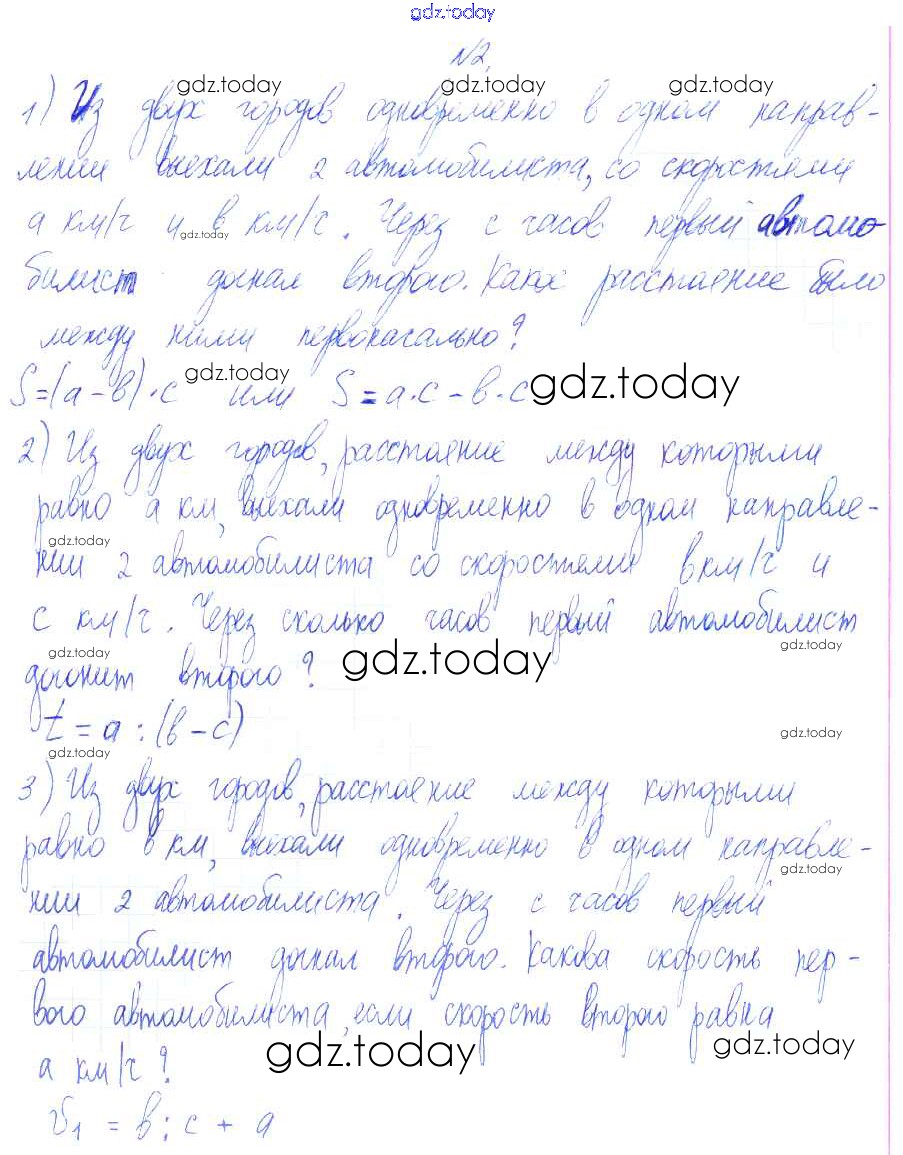 gdz.today
№2.
gdz.today gdz.today gdz.today
1) Из двух городов одновременно в одном направ-
лении выехали 2 автомобилиста, со скоростями
а км/ч и в км/ч. Через с часов первый автомо-
gdz.today
билист догнал второго. Какое расстояние было
между ними первоначально?
S=(а-в)·с или S=а·с-в·с
gdz.today gdz.today
2) Из двух городов, расстояние между которыми
равно а км, выехали одновременно в одном направле-
gdz.today gdz.today
нии 2 автомобилиста со скоростями в км/ч и
с км/ч. Через сколько часов первый автомобилист
gdz.today gdz.today gdz.today
догонит второго?
t = а : (в - с)
gdz.today gdz.today
3) Из двух городов, расстояние между которыми
равно в км, выехали одновременно в одном направле-
gdz.today
нии 2 автомобилиста. Через с часов первый
автомобилист догнал второго. Какова скорость пер-
вого автомобилиста, если скорость второго равна
gdz.today gdz.today
а км/ч?
V1 = в : с + а